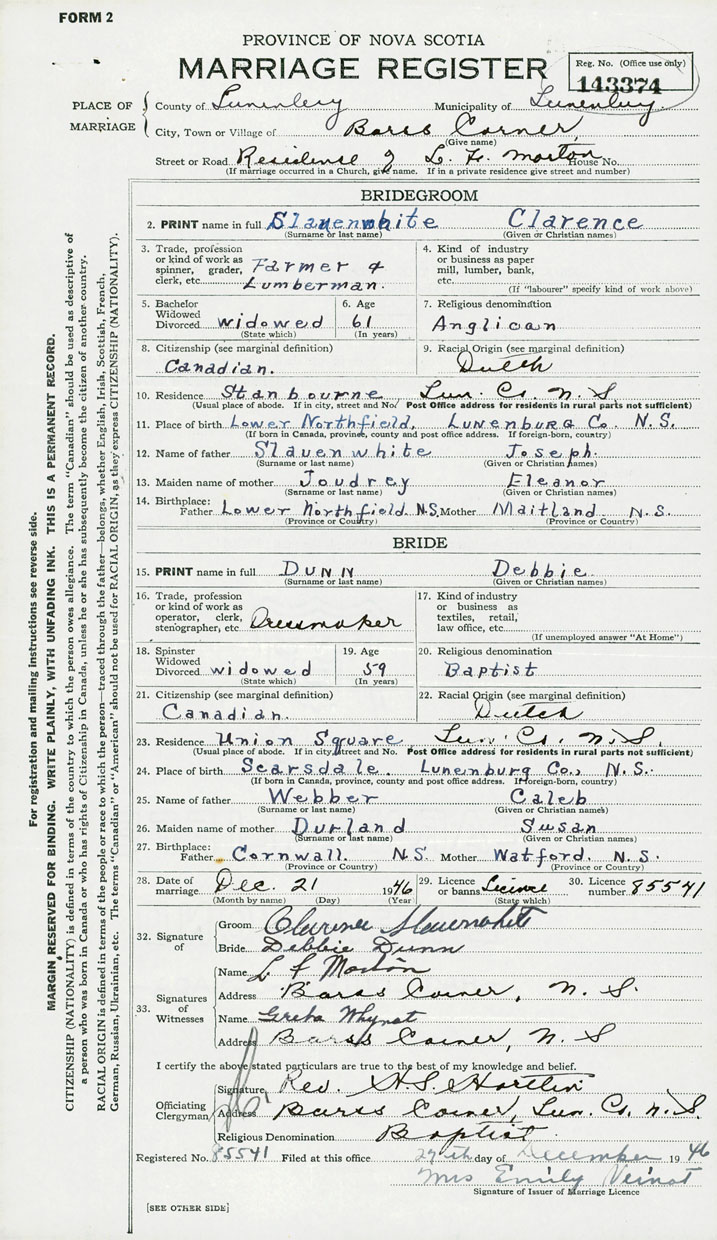 FORM 2
PROVINCE OF NOVA SCOTIA
MARRIAGE REGISTER
Reg. No. (Office use only)
143374
PLACE OF MARRIAGE
County of Lunenburg Municipality of Lunenburg
City, Town or Village of Barss Corner,
(Give name)
Street or Road Residence of L. F. Morton House No.
(If marriage occurred in a Church, give name. If in a private residence give street and number)
BRIDEGROOM
2. PRINT name in full Slauenwhite Clarence
(Surname or last name) (Given or Christian names)
3. Trade, profession or kind of work as spinner, grader, clerk, etc. Farmer & Lumberman.
4. Kind of industry or business as paper mill, lumber, bank, etc.
(If "labourer" specify kind of work above)
5. Bachelor Widowed Divorced widowed
(State which)
6. Age 61
(In years)
7. Religious denomination
Anglican
8. Citizenship (see marginal definition)
Canadian.
9. Racial Origin (see marginal definition)
Dutch
10. Residence Stanbourne Lun. Co. N. S
(Usual place of abode. If in city, street and No. Post Office address for residents in rural parts not sufficient)
11. Place of birth Lower Northfield, Lunenburg Co. N. S.
(If born in Canada, province, county and post office address. If foreign-born, country)
12. Name of father Slauenwhite Joseph.
(Surname or last name) (Given or Christian names)
13. Maiden name of mother Joudrey Eleanor
(Surname or last name) (Given or Christian names)
14. Birthplace:
Father Lower Northfield N.S. Mother Maitland N. S.
(Province or Country) (Province or Country)
BRIDE
15. PRINT name in full DUNN Debbie
(Surname or last name) (Given or Christian names)
16. Trade, profession or kind of work as operator, clerk, stenographer, etc. Dressmaker
17. Kind of industry or business as textiles, retail, law office, etc.
(If unemployed answer "At Home")
18. Spinster Widowed Divorced widowed
(State which)
19. Age 59
(In years)
20. Religious denomination
Baptist
21. Citizenship (see marginal definition)
Canadian.
22. Racial Origin (see marginal definition)
Dutch
23. Residence Union Square Lun. Co. N. S.
(Usual place of abode. If in city, street and No. Post Office address for residents in rural parts not sufficient)
24. Place of birth Scarsdale, Lunenburg Co., N. S.
(If born in Canada, province, county and post office address. If foreign-born, country)
25. Name of father Webber Caleb
(Surname or last name) (Given or Christian names)
26. Maiden name of mother Durland Susan
(Surname or last name) (Given or Christian names)
27. Birthplace:
Father Cornwall. N.S. Mother Watford, N. S.
(Province or Country) (Province or Country)
28. Date of marriage Dec. 21 1946
(Month by name) (Day) (Year)
29. Licence or banns Licence
(State which)
30. Licence number 85541
32. Signature of
Groom Clarence Slauenwhite
Bride Debbie Dunn
33. Signatures of Witnesses
Name L F Morton
Address Barss Corner, N. S.
Name Greta Whynot
Address Barss Corner, N. S
I certify the above stated particulars are true to the best of my knowledge and belief.
Officiating Clergyman,
Signature Rev. H. S. Hartlin
Address Barss Corner, Lun. Co. N. S.
Religious Denomination Baptist
Registered No. 85541 Filed at this office 27th day of December 1946
Mrs Emily Veinot
Signature of Issuer of Marriage Licence
[SEE OTHER SIDE]
For registration and mailing instructions see reverse side.
MARGIN RESERVED FOR BINDING. WRITE PLAINLY, WITH UNFADING INK. THIS IS A PERMANENT RECORD.
CITIZENSHIP (NATIONALITY) is defined in terms of the country to which the person owes allegiance. The term "Canadian" should be used as descriptive of
a person who was born in Canada or who has rights of Citizenship in Canada, unless he or she has subsequently become the citizen of another country.
RACIAL ORIGIN is defined in terms of the people or race to which the person—traced through the father—belongs, whether English, Irish, Scottish, French,
German, Russian, Ukrainian, etc. The terms "Canadian" or "American" should not be used for RACIAL ORIGIN, as they express CITIZENSHIP (NATIONALITY).